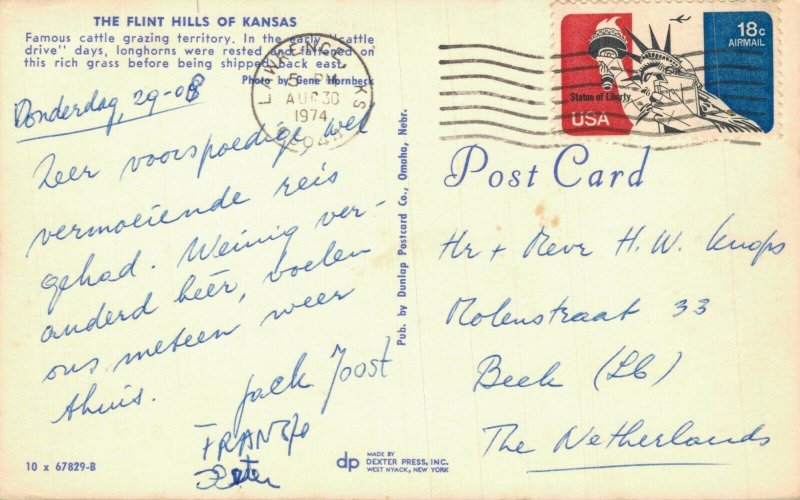 THE FLINT HILLS OF KANSAS
Famous cattle grazing territory. In the early "cattle
drive" days, longhorns were rested and fattened on
this rich grass before being shipped back east.
Photo by Gene Hornbeck
Donderdag, 29-08
Zeer voorspoedige, wel
vermoeiende reis
gehad. Weinig ver-
anderd hier, voelen
ons meteen weer
thuis.
Jack Joost
FRANSJE
Peter
10 x 67829-B
LAWRENCE, KS
5 PM
AUG 30
1974
Pub. by Dunlap Postcard Co., Omaha, Nebr.
dp
MADE BY
DEXTER PRESS, INC.
WEST NYACK, NEW YORK
18c
AIRMAIL
Statue of Liberty
USA
Post Card
Hr + Mevr H.W. Knops
Molenstraat 33
Beek (LB)
The Netherlands